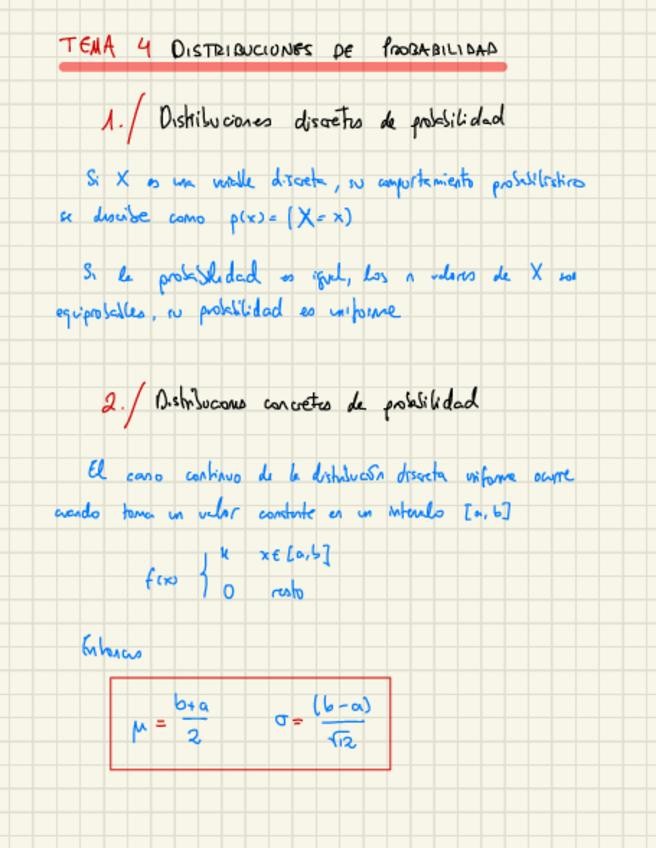 TEMA 4 DISTRIBUCIONES DE PROBABILIDAD
1./ Distribuciones discretas de probabilidad
Si X es una variable discreta, su comportamiento probabilístico
se describe como p(x) = (X = x)
Si la probabilidad es igual, los n valores de X son
equiprobables, su probabilidad es uniforme
2./ Distribuciones concretas de probabilidad
El caso continuo de la distribución discreta uniforme ocurre
cuando toma un valor constante en un intervalo [a,b]
f(x) { k x∈[a,b]
0 resto
Entonces
μ = b+a / 2 σ = (b-a) / √12